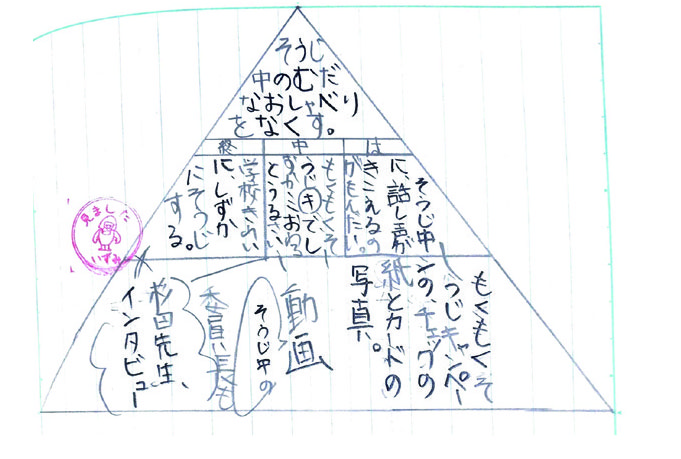 そうじ
中のむだ
なおしゃべり
をなくす。
は
そうじ中
に、話し声が
きこえるの
がもんだい。
中
もくもくそー
うじキでし
ずかにおわる
とうるさい
終
学校きれい
に、しずか
にそうじ
する。
もくもくそ
うじキャンペー
ンのチェックの
紙とカードの
写真。
動画
そうじ中の
委員長も
杉田先生、
インタビュー
見ました